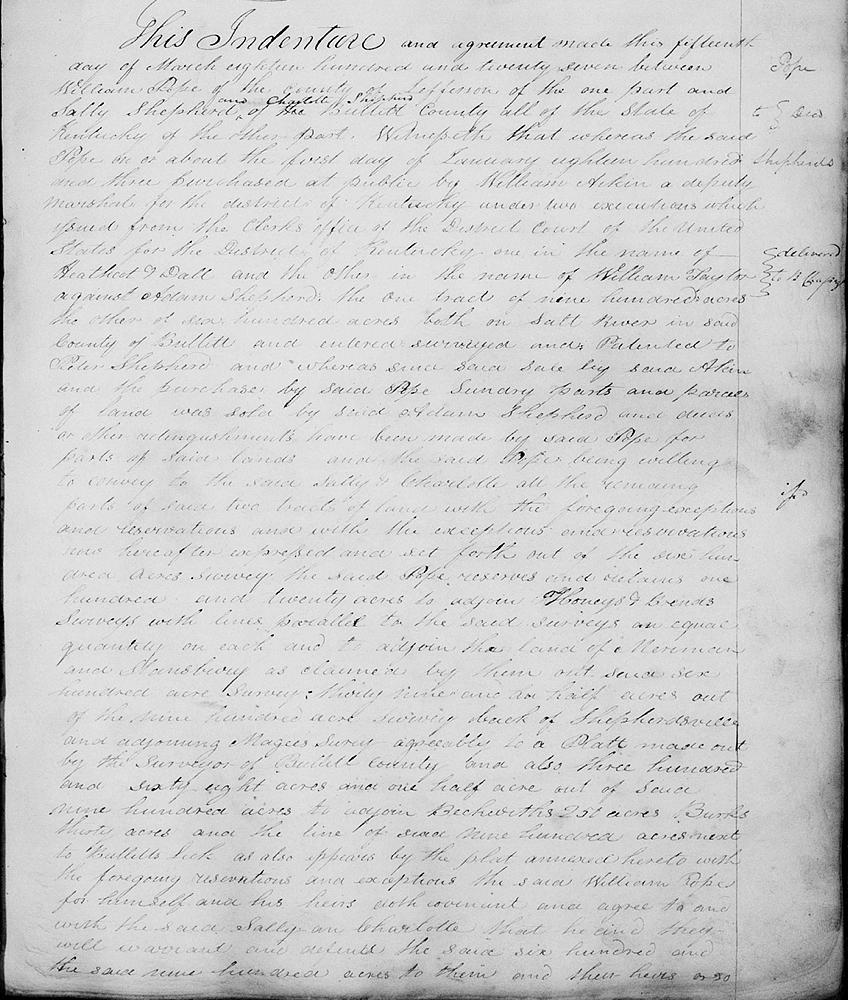 This Indenture and agreement made this fifteenth
day of March eighteen hundred and twenty seven between
William Pope of the County of Jefferson of the one part and
and Charlotte Shepherd
Sally Shepherd of the Bullitt County all of the State of
Kentucky of the other part. Witnesseth that whereas the said
Pope on or about the first day of January eighteen hundred
and three purchased at public by William Akin a deputy
Marshal for the district of Kentucky under two executions which
issued from the Clerks office of the District Court of the United
States for the District of Kentucky one in the name of
Heathcot & Dall and the other in the name of William Taylor
against Adam Shepherd. the one tract of nine hundred acres
the other of six hundred acres both on Salt River in said
County of Bullitt and entered surveyed and Patented to
Peter Shepherd and whereas since said sale by said Akin
and the purchase by said Pope Sundry parts and parcels
of land was sold by said Adam Shepherd and deeds
or other relinquishments have been made by said Pope for
parts of said lands and the said Pope being willing
to convey to the said Sally & Charlotte all the remaining
parts of said two tracts of land with the foregoing exceptions
and reservations and with the exceptions and reservations
now hereafter expressed and set forth out of the six hun
dred acres survey the said Pope reserves and retains one
hundred and twenty acres to adjoin & 
Surveys with lines parallel to the said surveys an equal
quantity on each and to adjoin the land of Merriman
and Stansbury as claimed by them out said six
hundred acre survey: thirty nine and an half acres out
of the nine hundred acre survey back of Shepherdsville
and adjoining Magees Survey agreeably to a Platt made out
by the Surveyor of Bullitt County and also three hundred
and sixty eight acres and one half acre out of said
nine hundred acres to adjoin Beckwiths 250 acres Burks
thirty acres and the line of said nine hundred acres next
to Bullitts Lick as also appears by the plat annexed hereto with
the foregoing reservations and exceptions the said William Pope
for himself and his heirs doth covenant and agree to and
with the said Sally an Charlotte that he and they
will warrant and defend the said six hundred and
the said nine hundred acres to them and their heirs
Pope
to Deed
Shepherds
delivered
to